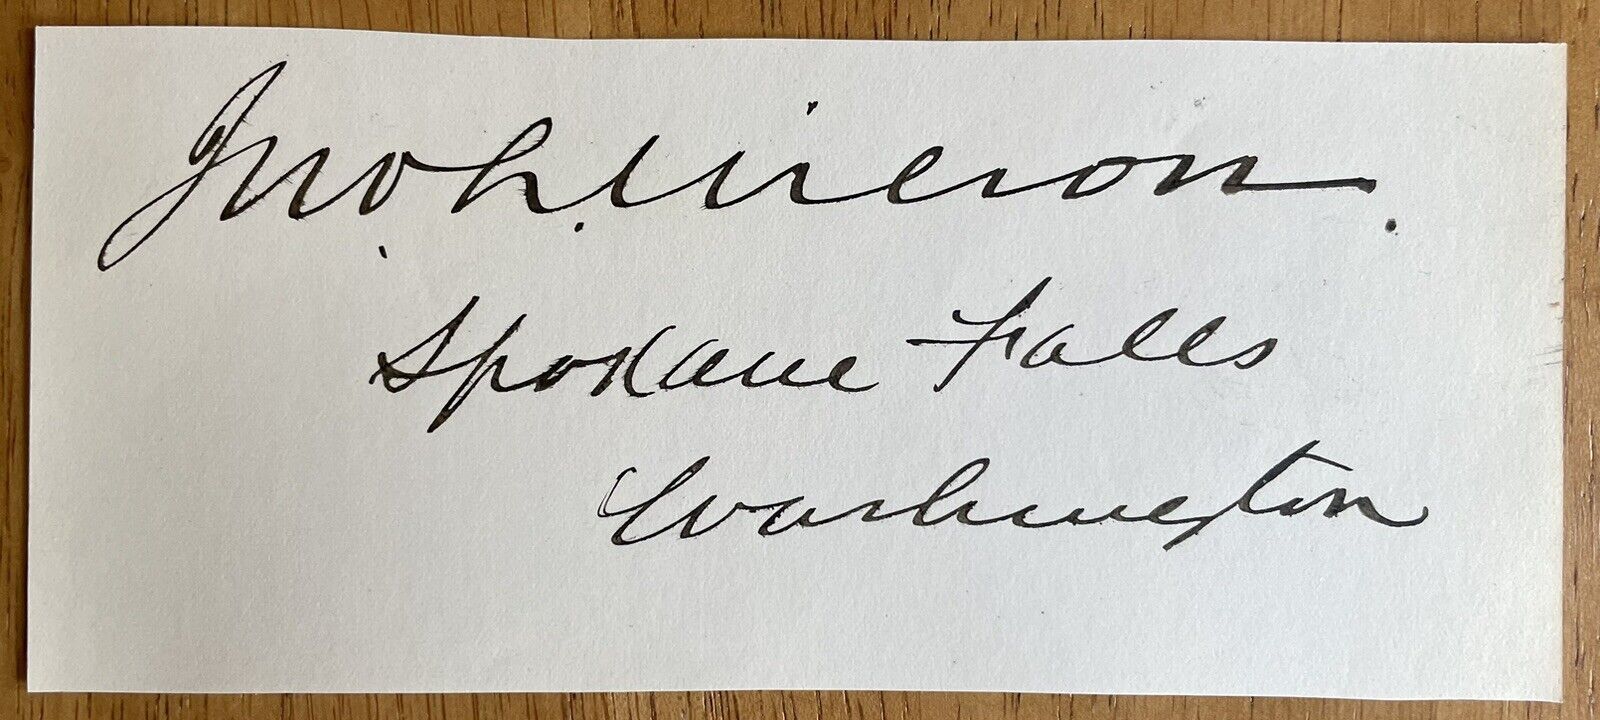 Jno. L. Wilson.
Spokane Falls
Washington